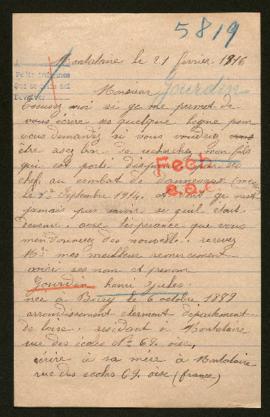 5819
Montataire le 21 février 1916
Monsieur Gourdin
Excusez moi si je me permet de
vous écrire ces quelques ligne pour
vous demandez si vous voudriez
être assez bon de recherchez mon fils
qui est porté disparu
chef au combat de
le 1er Septembre 1914
jamais pus savoir se quil était
devenu. avec l'espérance que vous
men donnerez des nouvelle. recevez
Mr mes meilleurs remerciement
voici ses nom et prenom
Gourdin henri jules
née à Précy le 6 octobre 1889
arrondissement clermont département
de loise, résidant à Montataire
rue des écoles No 69 oise,
écrire à sa mère à Montataire
rue des écoles 69 oise (france)